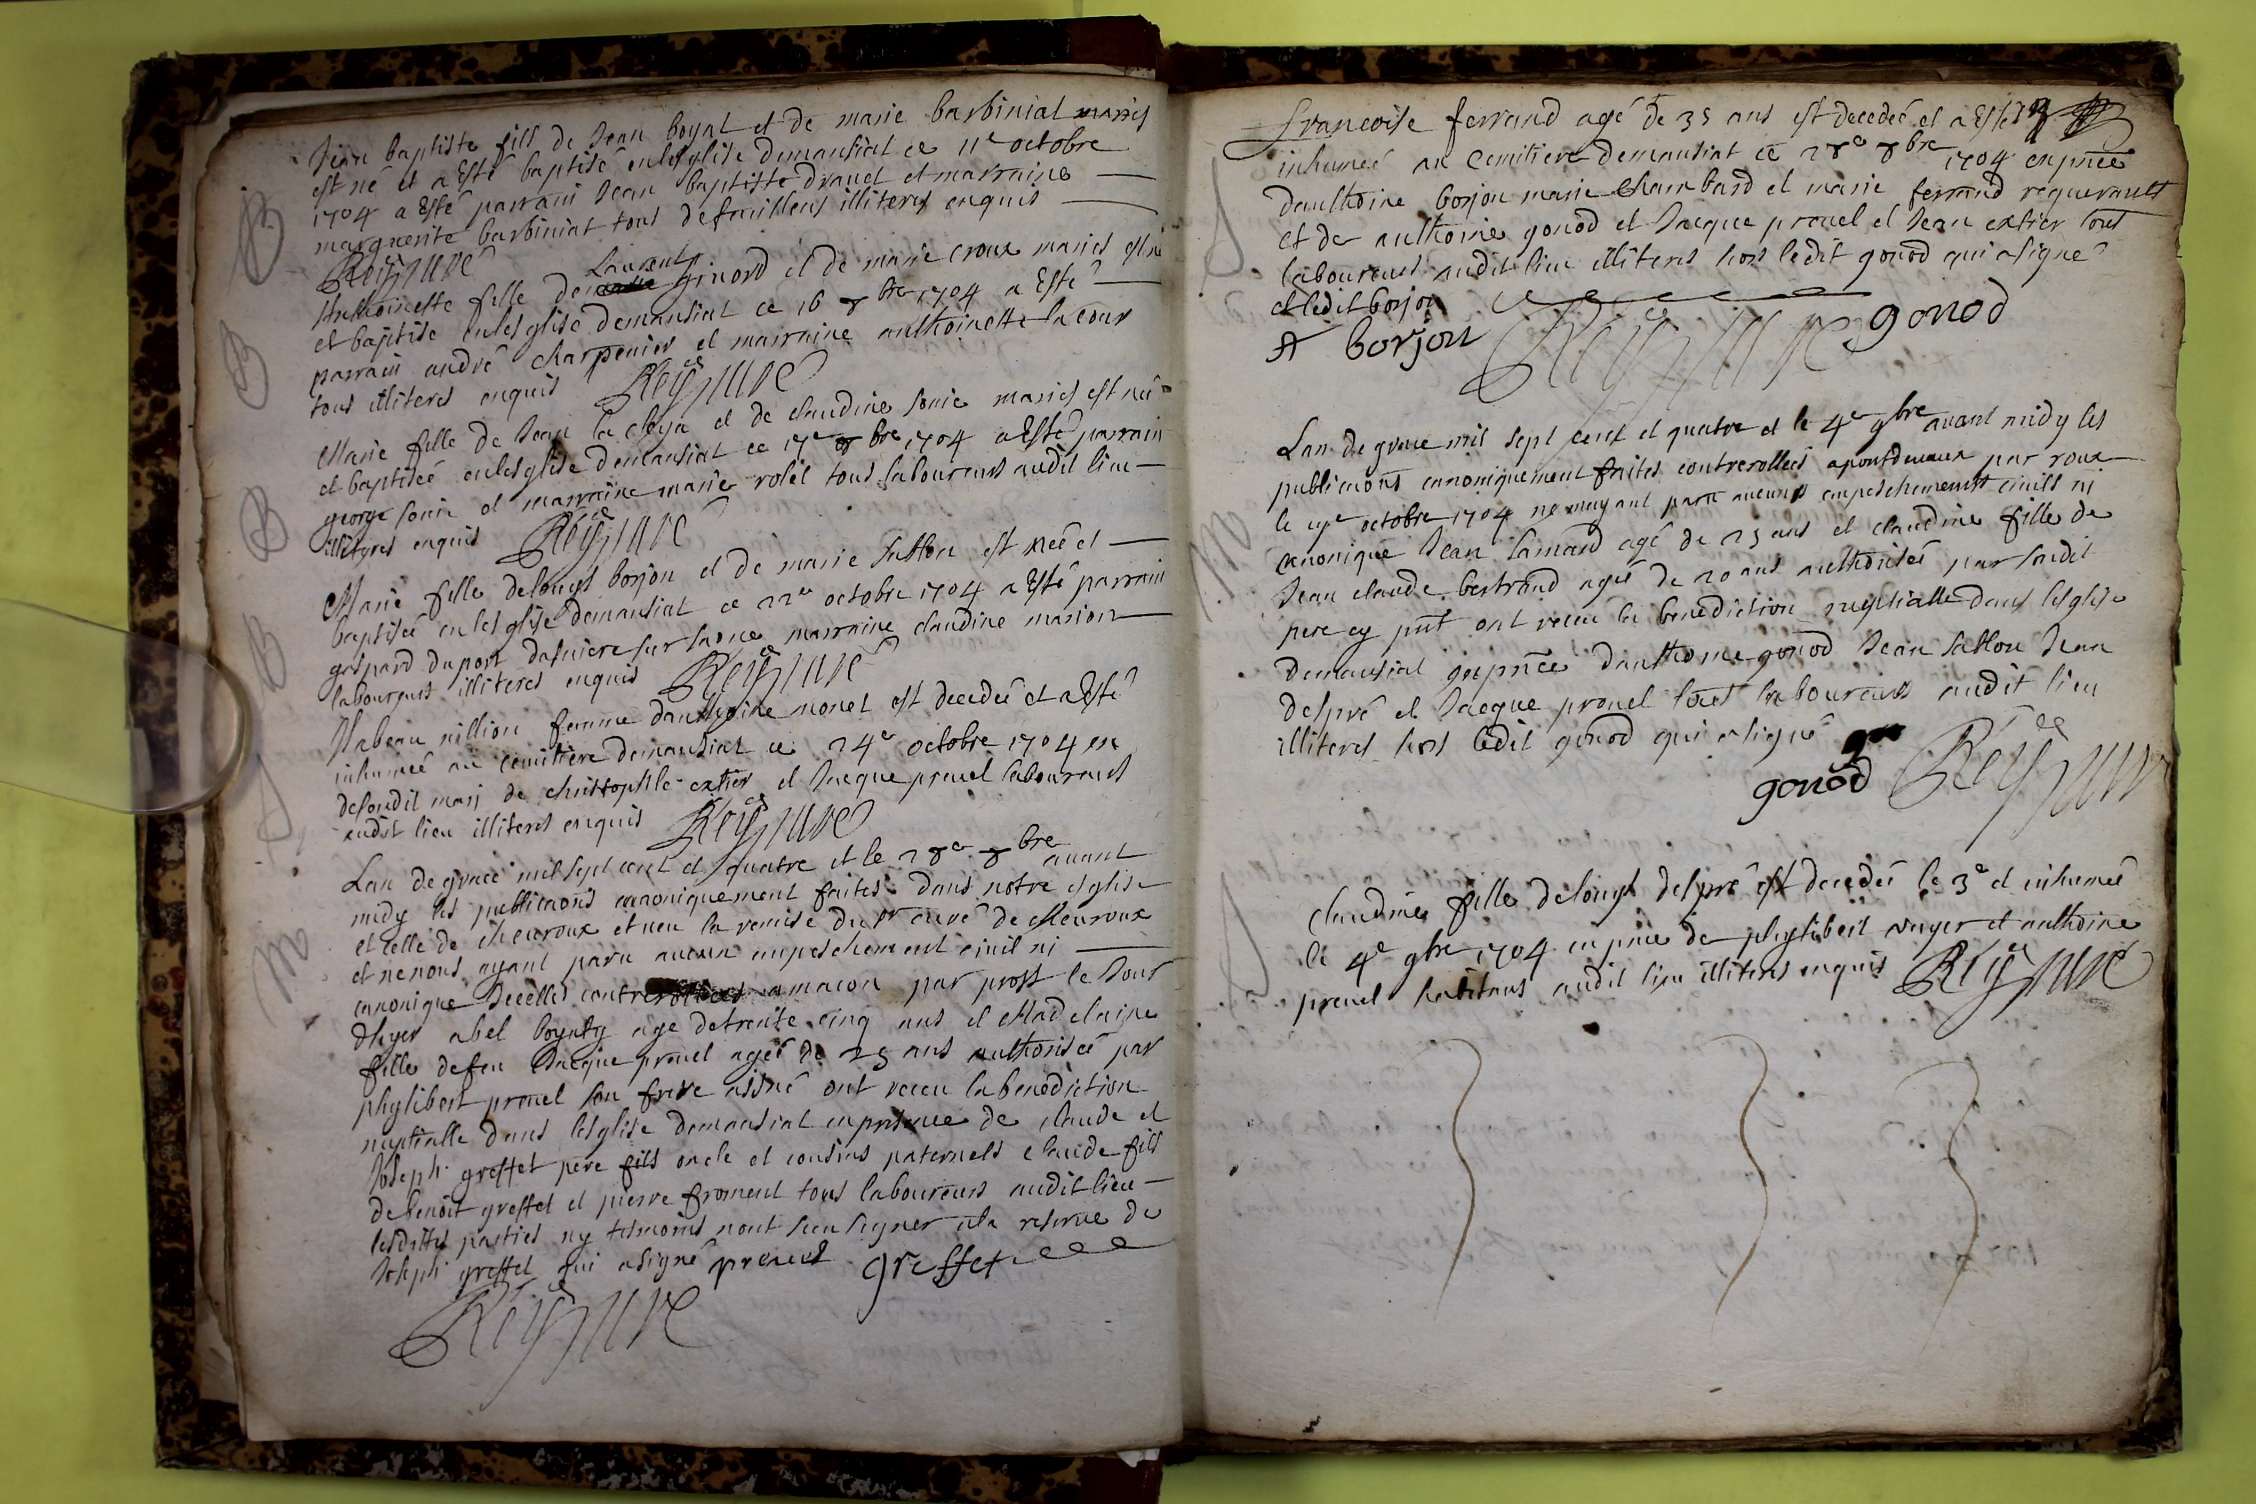 Jean baptiste fils de Jean boyat et de marie barbiniat mariés
est né et a Esté baptisé en lesglise demansiat ce 11e octobre
1704 a Esté parrain Jean baptiste dravet et marraine
marguerite barbiniat tous de feuillens illiteres enquis
B
Anthoinette fille de Laurent ginord et de marie croux mariés est né
et baptisé en lesglise demansiat ce 16 8bre 1704 a Esté
parrain andré charpenier et marraine anthoinette la cour
tous illiteres enquis
B
Marie fille de Jean la cleya et de claudine sonie mariés est né
et baptiseé en lesglise demansiat ce 17e 8bre 1704 a Esté parrain
george sonie et marraine marie rolet tous laboureurs audit lieu
illiteres enquis
B
Marie fille de louys borjon et de marie sallon est neé et
baptiseé en lesglise demansiat ce 22e octobre 1704 a Esté parrain
gaspard dupont dasniere sur saone marraine claudine marion
laboureurs illiteres enquis
B
Ysabeau million femme danthoine monet est decedeé et a Esté
inhumeé au cemitiere demansiat ce 24e octobre 1704 en
de sondit mary de christophle extier et Jacque prevel laboureurs
audit lieu illiteres enquis
S
Lan de grace mil sept cent et quatre et le 28e 8bre avant
midy les publicaons canoniquement faites dans notre esglise
et celle de cheuroux et veu la remise du sr curé de cheuroux
et ne nous ayant paru aucun empeschement civil ni
canonique Icelles controllees a macon par prost le Jour
dhyer abel boyat agé de trente cinq ans et Madelaine
fille de feu Jacque prevel ageé de 25 ans authoriseé par
phylibert prevel son frere aisné ont receu la benediction
nuptialle dans lesglise demansiat en presence de claude et
Joseph greffet pere fils oncle et cousins paternels claude fils
de benoit greffet et pierre froment tous laboureurs audit lieu
lesdittes parties ny tesmoins nont sceu signer a la reserve de
Joseph greffet qui a signé prevel greffet
M
Francoise ferrand agé de 35 ans est decedeé et a Esté
inhumeé au cemitiere demansiat ce 28e 8bre 1704 en pnce
danthoine borjon marie chambard et marie ferrand requerants
et de anthoine gonod et Jacque prevel et Jean extier tous
laboureurs audit lieu illiteres hors ledit gonod qui a signé
et ledit borjon
A borjon gonod
S
Lan de grace mil sept cent et quatre et le 4e 9bre avant midy les
publicaons canoniquement faites controllees a pontdevaux par roux
le octobre 1704 ne mayant paru aucuns empeschements civils ni
canonique Jean lamard agé de 25 ans et claudine fille de
Jean claude bertrand ageé de 20 ans authoriseé par sondit
pere cy pnt ont receu la benediction nuptialle dans lesglise
demansiat en pnce danthoine gonod Jean sallon Jean
despré et Jacque prevel tous laboureurs audit lieu
illiteres hors ledit gonod qui a signé
gonod
M
Claudine fille de louys despré est decedeé le 3e et inhumeé
le 4e 9bre 1704 en pnce de phylibert vuyer et anthoine
prevel habitans audit lieu illiteres enquis
S